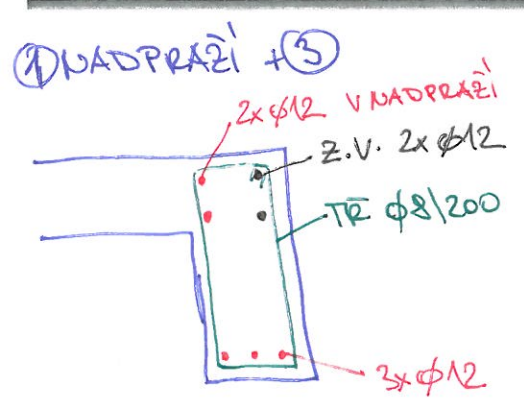 ① NADPRAŽÍ + ③
2x ϕ12 V NADPRAŽÍ
Z.V. 2x ϕ12
TŘ ϕ8/200
3x ϕ12